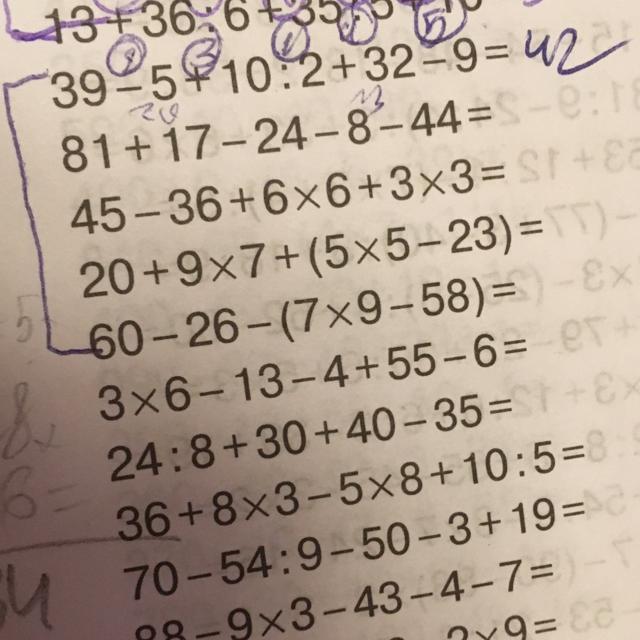 13+36:6+35:5+10
39-5+10:2+32-9= 42
81+17-24-8-44=
45-36+6×6+3×3=
20+9×7+(5×5-23)=
60-26-(7×9-58)=
3×6-13-4+55-6=
24:8+30+40-35=
36+8×3-5×8+10:5=
70-54:9-50-3+19=
88-9×3-43-4-7=